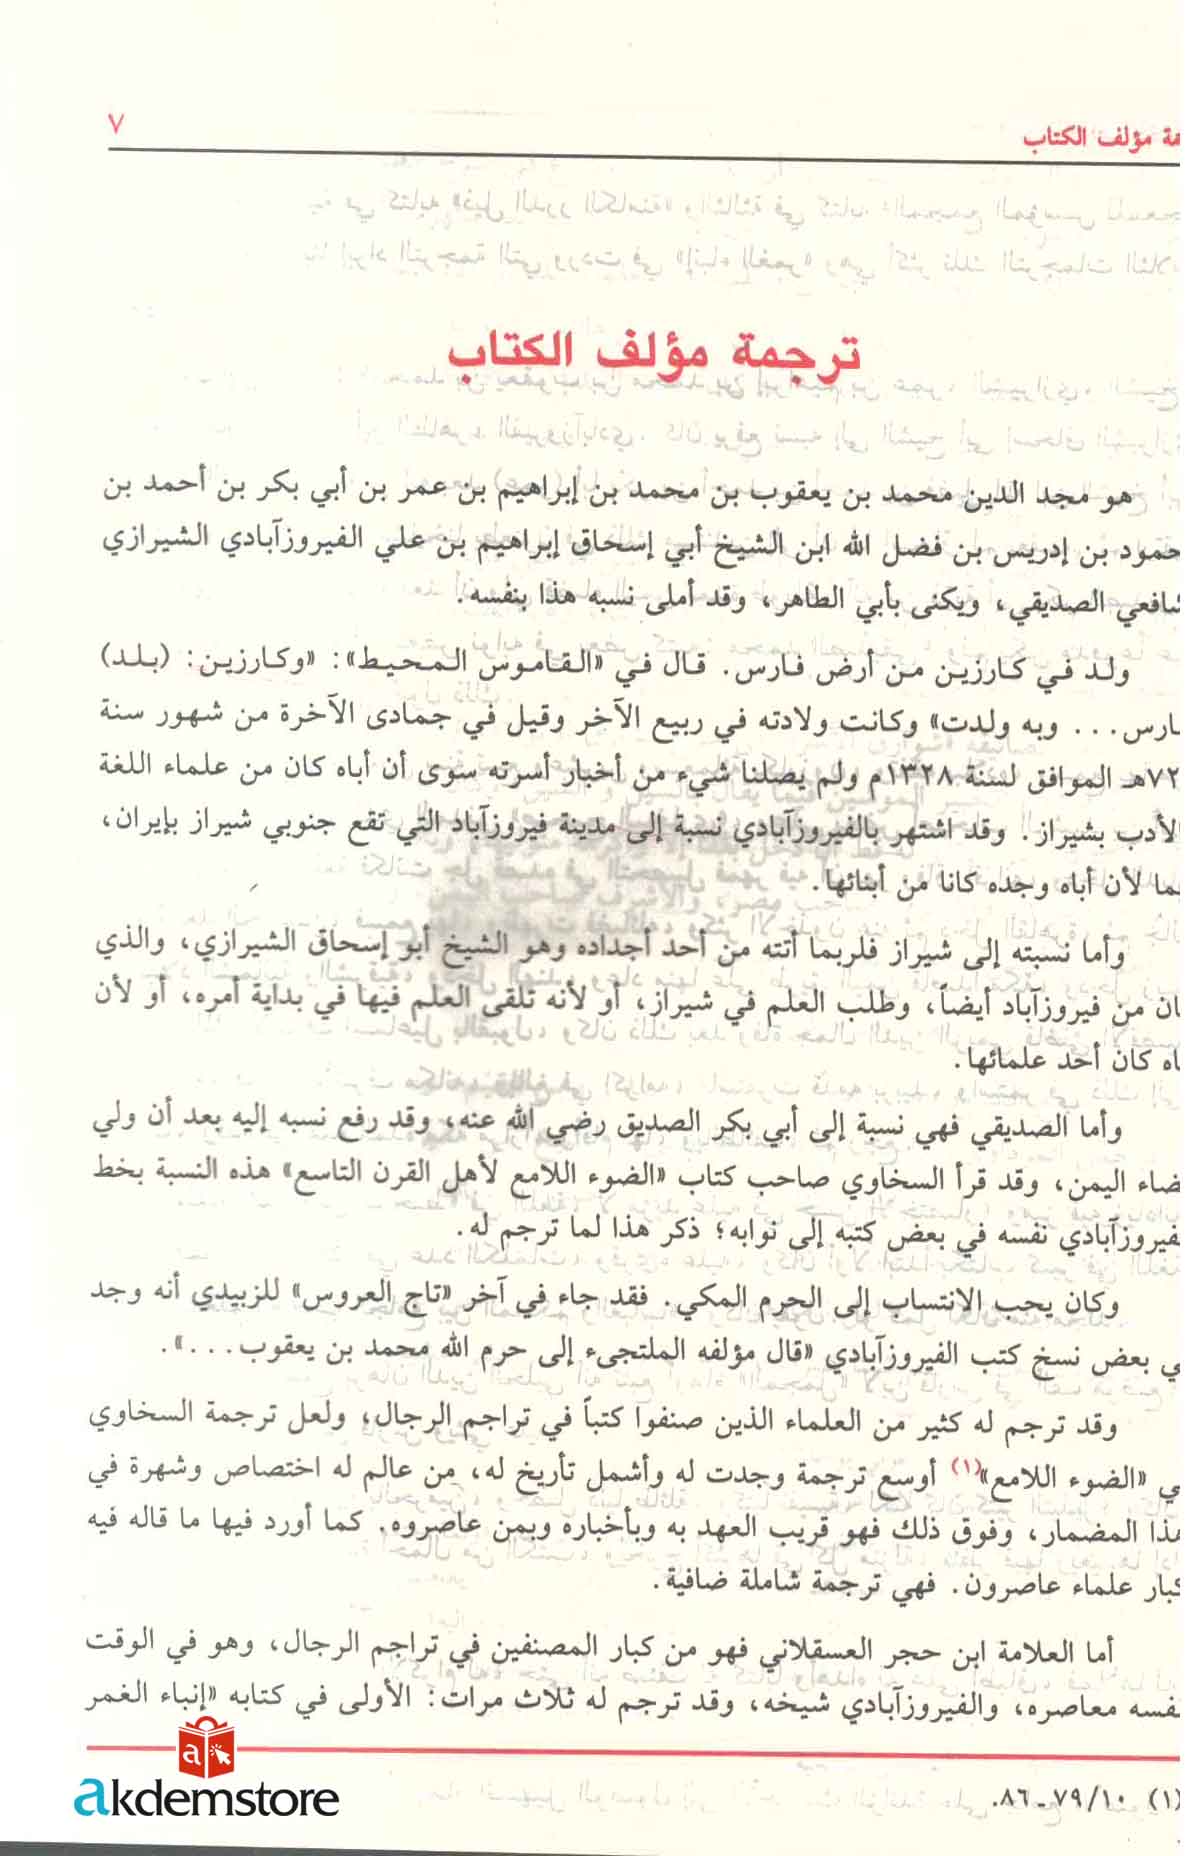 ٧
مؤلف الكتاب
ترجمة مؤلف الكتاب
هو مجد الدين محمد بن يعقوب بن محمد بن إبراهيم بن عمر بن أبي بكر بن أحمد بن
حمود بن إدريس بن فضل الله ابن الشيخ أبي إسحاق إبراهيم بن علي الفيروزآبادي الشيرازي
شافعي الصديقي، ويكنى بأبي الطاهر، وقد أملى نسبه هذا بنفسه.
ولد في كارزين من أرض فارس. قال في «القاموس المحيط»: «وكارزين: (بلد)
ارس... وبه ولدت» وكانت ولادته في ربيع الآخر وقيل في جمادى الآخرة من شهور سنة
٧٢هـ الموافق لسنة ١٣٢٨م ولم يصلنا شيء من أخبار أسرته سوى أن أباه كان من علماء اللغة
الأدب بشيراز. وقد اشتهر بالفيروزآبادي نسبة إلى مدينة فيروزآباد التي تقع جنوبي شيراز بإيران،
ما لأن أباه وجده كانا من أبنائها.
وأما نسبته إلى شيراز فلربما أتته من أحد أجداده وهو الشيخ أبو إسحاق الشيرازي، والذي
ان من فيروزآباد أيضاً، وطلب العلم في شيراز، أو لأنه تلقى العلم فيها في بداية أمره، أو لأن
اه كان أحد علمائها.
وأما الصديقي فهي نسبة إلى أبي بكر الصديق رضي الله عنه، وقد رفع نسبه إليه بعد أن ولي
ضاء اليمن، وقد قرأ السخاوي صاحب كتاب «الضوء اللامع لأهل القرن التاسع» هذه النسبة بخط
فيروزآبادي نفسه في بعض كتبه إلى نوابه؛ ذكر هذا لما ترجم له.
وكان يحب الانتساب إلى الحرم المكي. فقد جاء في آخر «تاج العروس» للزبيدي أنه وجد
ي بعض نسخ كتب الفيروزآبادي «قال مؤلفه الملتجىء إلى حرم الله محمد بن يعقوب...».
وقد ترجم له كثير من العلماء الذين صنفوا كتباً في تراجم الرجال؛ ولعل ترجمة السخاوي
ي «الضوء اللامع»(١) أوسع ترجمة وجدت له وأشمل تأريخ له، من عالم له اختصاص وشهرة في
هذا المضمار، وفوق ذلك فهو قريب العهد به وبأخباره وبمن عاصروه. كما أورد فيها ما قاله فيه
كبار علماء عاصرون. فهي ترجمة شاملة ضافية.
أما العلامة ابن حجر العسقلاني فهو من كبار المصنفين في تراجم الرجال، وهو في الوقت
نفسه معاصره، والفيروزآبادي شيخه، وقد ترجم له ثلاث مرات: الأولى في كتابه «إنباء الغمر
(١) ١٠/٧٩-٨٦.
akdemstore